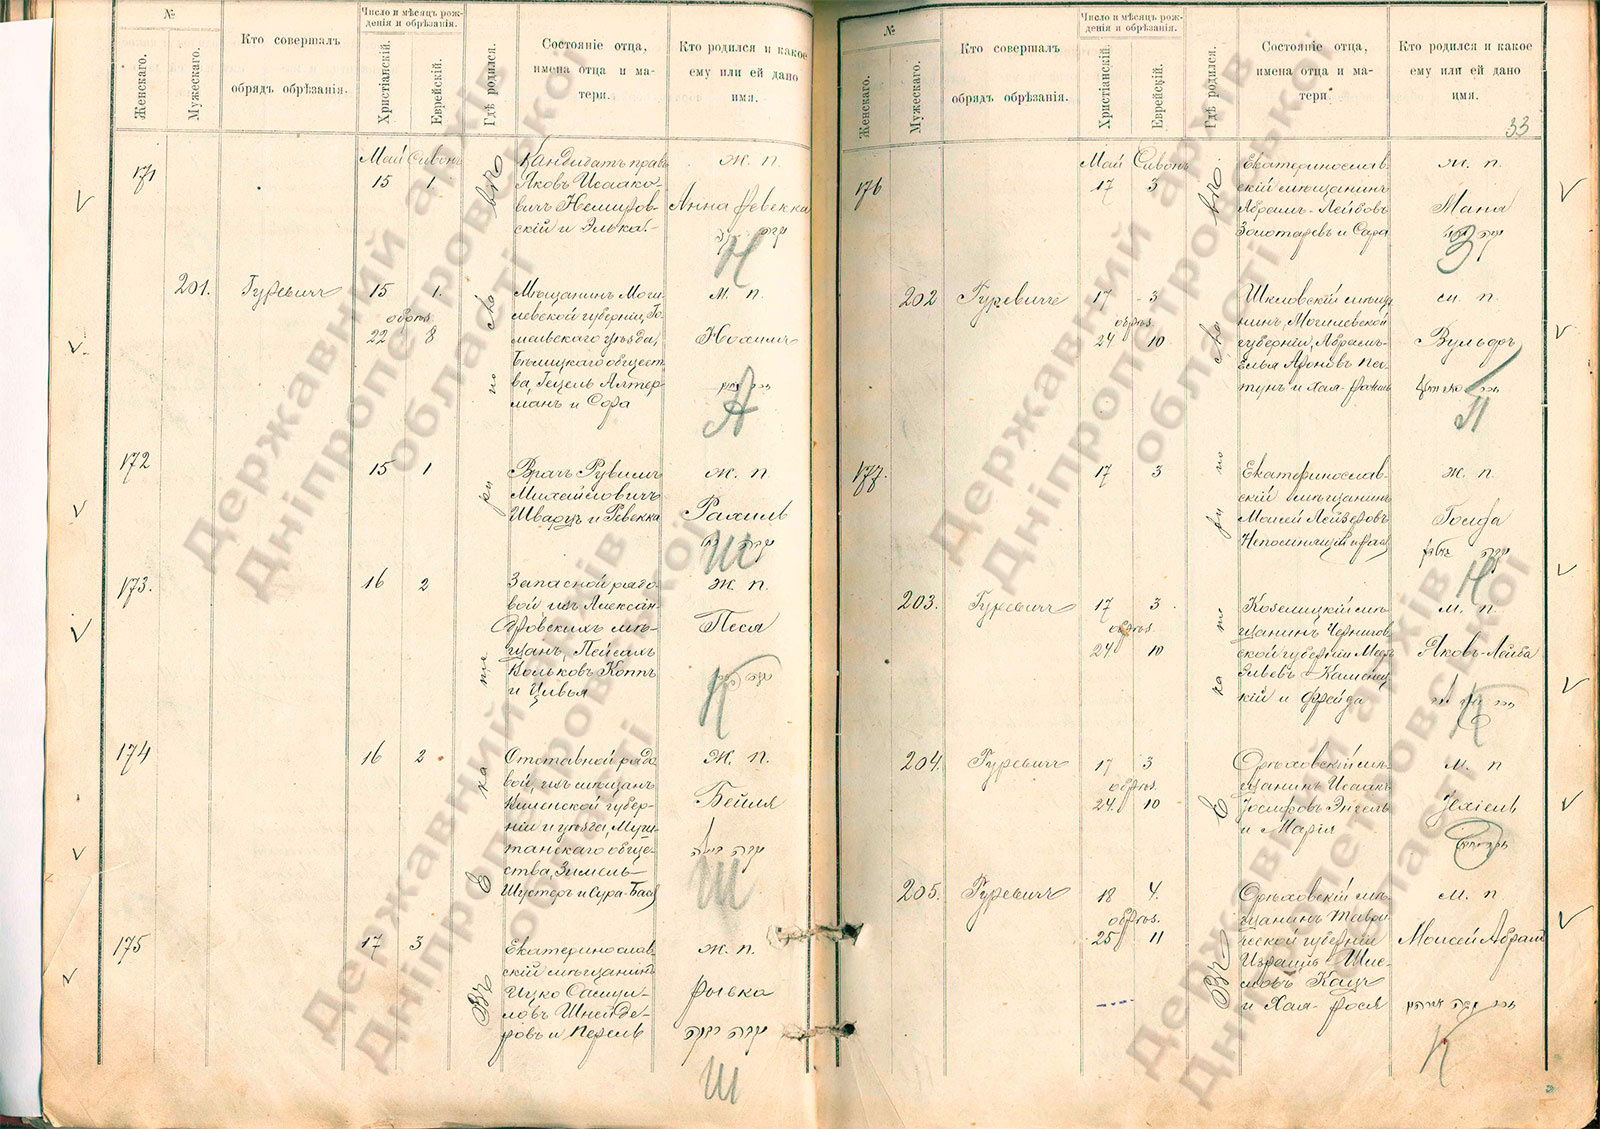 №
Женскаго.
Мужескаго.
Кто совершалъ
обрядъ обрѣзанія.
Число и мѣсяцъ рож-
денія и обрѣзанія.
Христіанскій.
Еврейскій.
Гдѣ родился.
Состояніе отца,
имена отца и ма-
тери.
Кто родился и какое
ему или ей дано
имя.
171
Май Сивонъ
15 1.
Кандидатъ правъ
Яковъ Исаако-
вичъ Немиров-
скій и Элька.
ж. п.
Анна Ревекка
Н
201.
Гуревичъ
15 1.
обрѣз.
22 8
Мѣщанинъ Моги-
левской губерніи, Го-
мельскаго уѣзда,
Бѣлицкаго общест-
ва, Гецель Алтер-
манъ и Сора
м. п.
Нохимъ
А
172
15 1
Врачъ Рувимъ
Михайловичъ
Шварцъ и Ревекка
ж. п.
Рахиль
Ш
173.
16 2
Запасной рядо-
вой изъ Алексан-
дровскихъ мѣ-
щанъ, Пейсахъ
Вольковъ Коттъ
и Цивья
ж. п.
Песя
К
174
16 2
Отставной рядо
вой, изъ мѣщанъ
губер-
ніи и уѣзда,
танскаго обще-
ства, Зимель
Шустеръ и Сура-Бася
ж. п.
Бейля
Ш
175
17 3
Екатеринослав
скій мѣщанинъ
Ицко Самуи-
ловъ Шнейде-
ровъ и Перель
ж. п.
Рывка
קטה רבקה
Ш
Въ Екатеринославѣ
№
Женскаго.
Мужескаго.
Кто совершалъ
обрядъ обрѣзанія.
Число и мѣсяцъ рож-
денія и обрѣзанія.
Христіанскій.
Еврейскій.
Гдѣ родился.
Состояніе отца,
имена отца и ма-
тери
Кто родился и какое
ему или ей дано
имя.
33
176
Май Сивонъ
17 3
Екатеринослав
скій мѣщанинъ
Абрамъ-Лейбовъ
Золотаревъ и Сара
ж. п.
Маня
З
202
Гуревичъ
17 3
обрѣз.
24 10
Шкловскій мѣща
нинъ, Могилевской
губерніи, Абрамъ-
Элья Ароновъ Пес-
тунъ и Хая-Рохиль
м. п.
Вульфъ
П
177.
17 3
Екатеринослав-
скій мѣщанинъ
Моисей Лейзеровъ
Непомнящій и Рася
ж. п.
Голда
Н
203.
Гуревичъ
17 3
обрѣз.
24 10
Козелицкій мѣ-
щанинъ Чернигов
ской губерніи
Эльевъ Каменец-
кій и Фрейда
м. п.
Яковъ-Лейба
К
204
Гуревичъ
17 3
обрѣз.
24. 10
Орѣховскій мѣ-
щанинъ Исаакъ
Іосифовъ Энгель
и Марія
м. п
Іехіель
205.
Гуревичъ
18 4.
обрѣз.
25 11
Орѣховскій мѣ-
щанинъ Таври-
ческой губерніи
Израиль Шле-
мовъ Кацъ
и Хая-Фося
м. п
Моисей Абрамъ
К
Въ Екатеринославѣ
Державний архів
Дніпропетровської
області